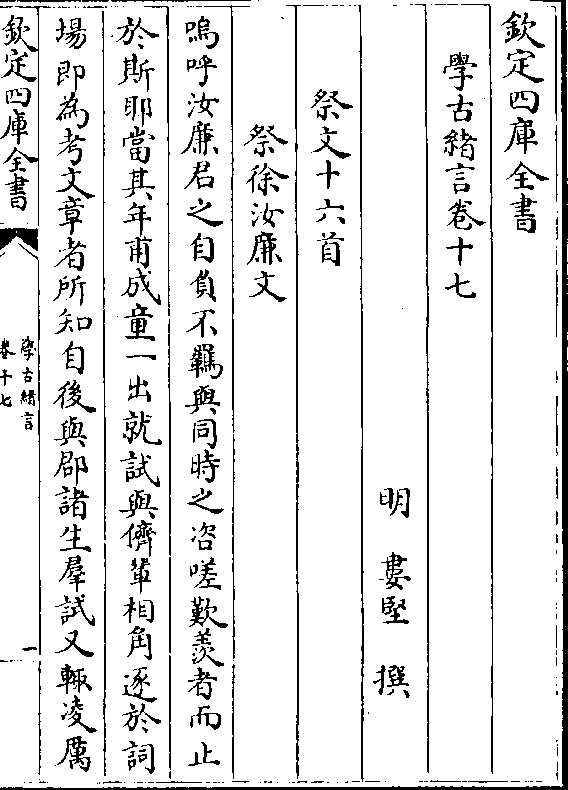 欽定四庫全書
學古緒言卷十七
明　婁堅　撰
祭文十六首
祭徐汝廉文
嗚呼汝廉君之自負不羈與同時之咨嗟歎羨者而止
於斯耶當其年甫成童一出就試與儕軰相角逐於詞
場即為考文章者所知自後與郡諸生羣試又輙凌厲
欽定四庫全書
學古緒言
卷十七
一